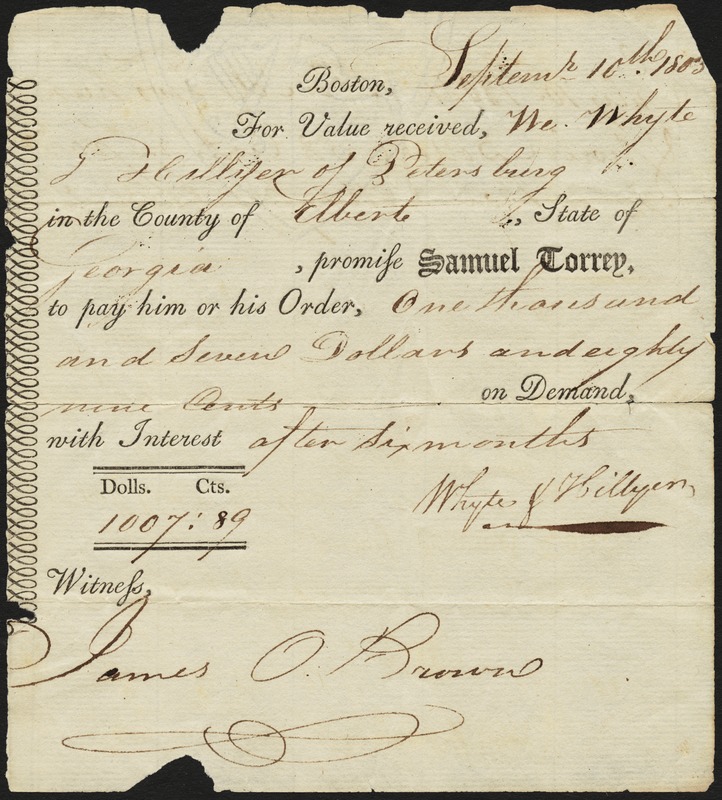 Boston, Septemr 10th. 1803
For Value received, We Whyte
& Hillyer of Petersburg
in the County of Elberte, State of
Georgia, promiſe Samuel Torrey,
to pay him or his Order, One thousand
and Seven Dollars and eighty
nine Cents on Demand,
with Interest after six months
Dolls. Cts.
Whyte & Hillyer
1007: 89
Witneſs,
James O. Brown